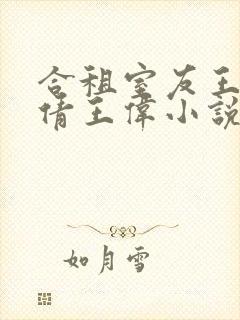 合租室友王
倩王偉小説
如月雪